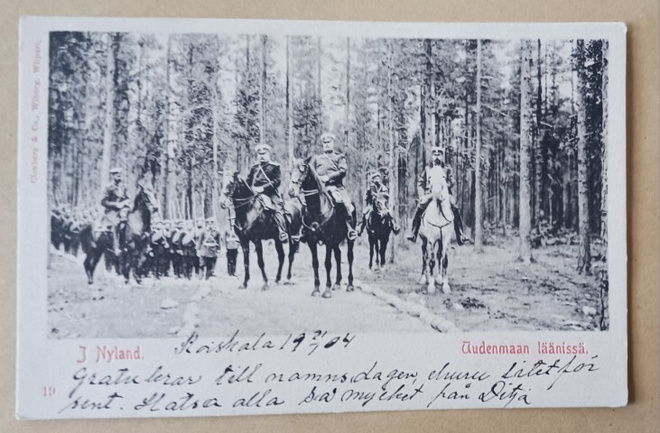 Clouberg & Co., Wiborg, Wiipuri.
J Nyland.
Uudenmaan läänissä.
19
Koiskala 19 21/1 04
Gratulerar till namnsdagen, ehuru litet för
sent. Halsa alla så mycket från Ditja